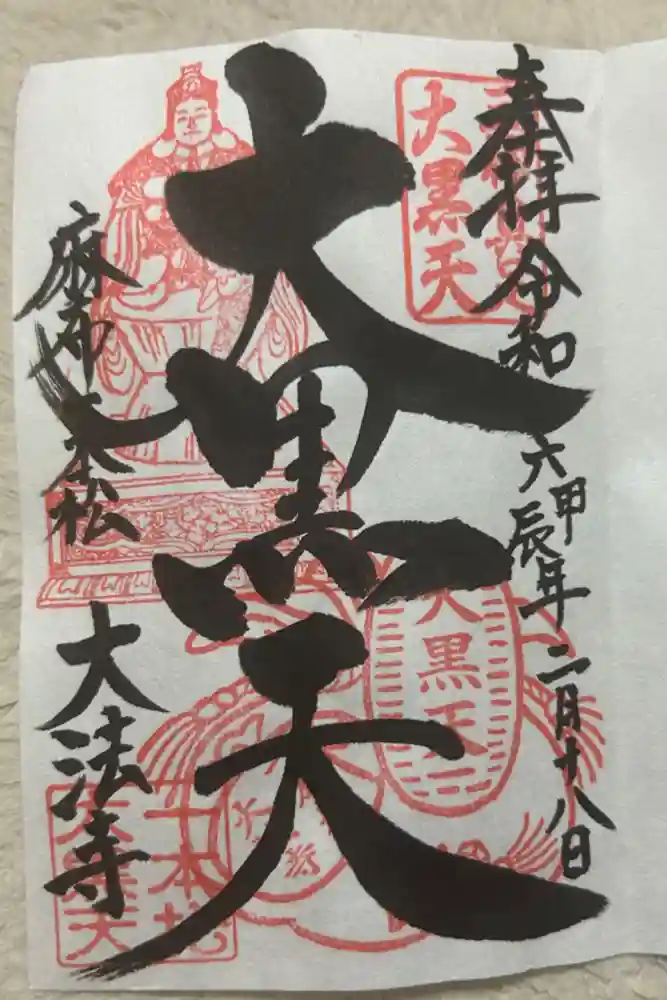 奉拝 令和六甲辰年二月十八日
大黒天
麻布一本松 大法寺
大黒天
大黒天
一本松
大黒天